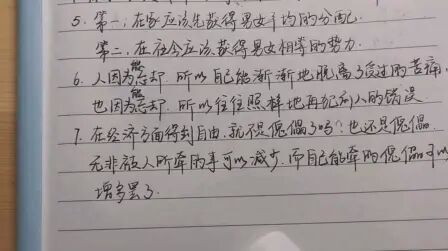 5. 第一,在家应该先获得男女平均的分配.
第二,在社会应该获得男女相等的势力.
6. 人因为能忘却,所以自己能渐渐地脱离了受过的苦痛.
也因为能忘却,所以往往照样地再犯前人的错误.
7. 在经济方面得到自由,就不是傀儡了吗?也还是傀儡.
无非被人所牵的事可以减少,而自己能牵的傀儡可以
增多罢了.